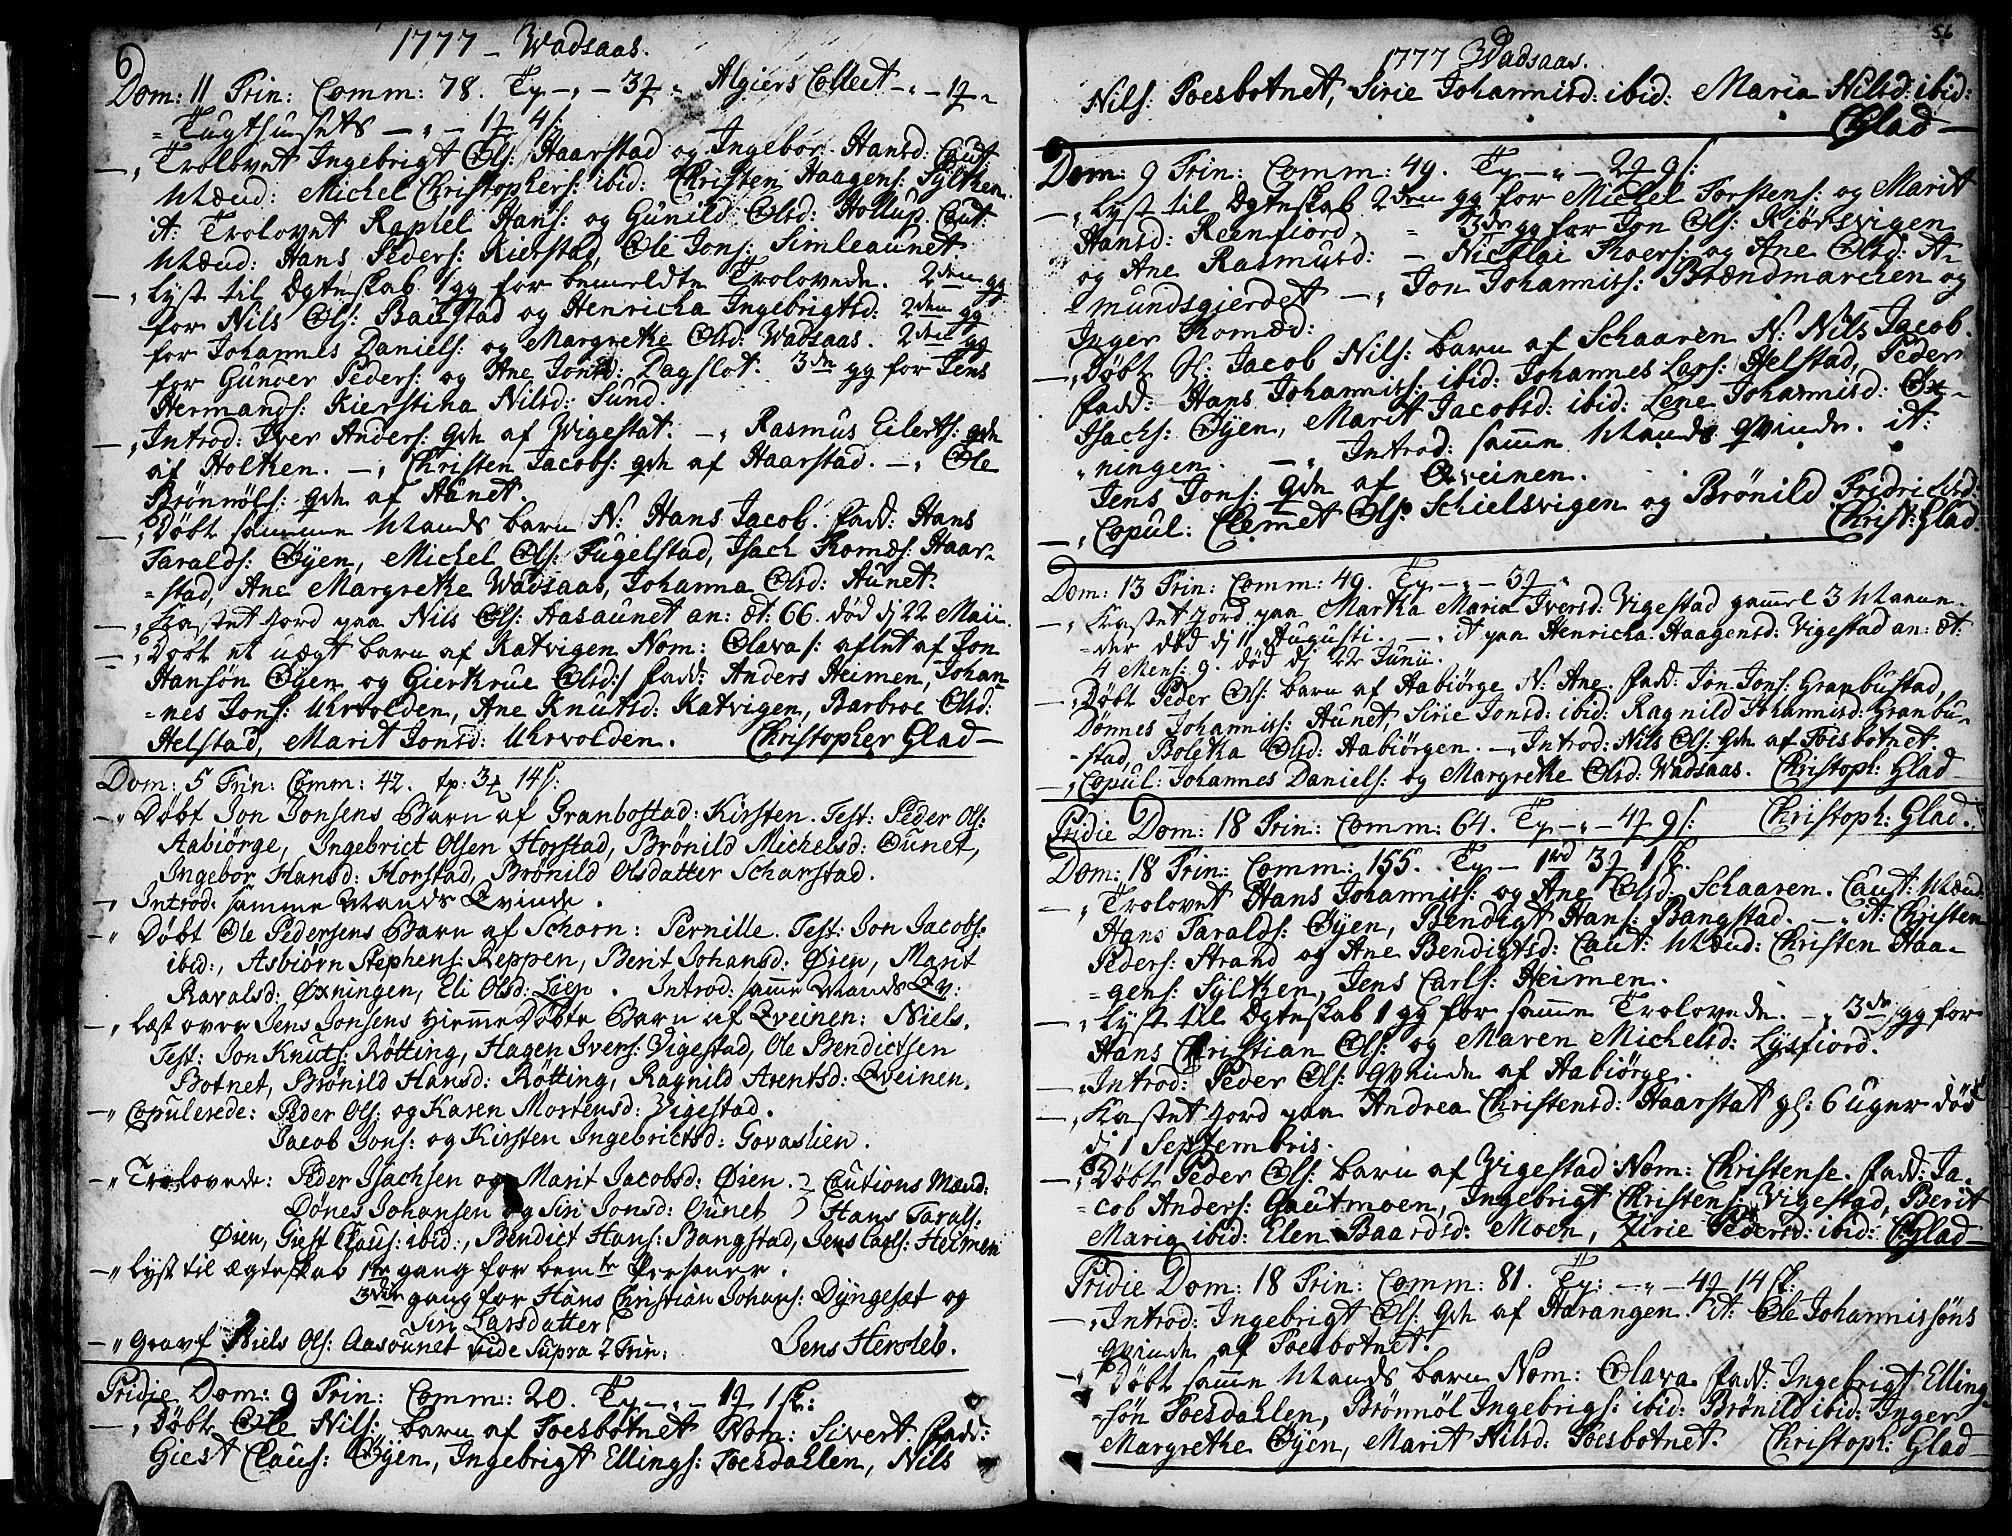 6
1777 - Wadsaas.
Dom: 11 Trin: Comm: 78. Ty -"- 3 " Algiers Collect -"- 1 "
= Tugthusets -"- 1 4 s:
-, Trolovet Ingebrigt Ols: Haarstad og Ingebor Hansd: Caut:
Mænd: Michel Christophers: ibid: Christen Haagens: Syltken.
it: Trolovet Raphel Hans: og Gunild Olsd: Hollup. Caut:
Mænd: Hans Peders: Kierstad, Ole Jons: Simleaunet
-, Lyst til Ægteskab 1 gg for bemeldte Trolovede. 2den gg
for Nils Ols: Baustad og Henricha Ingebrigtsd: 2den gg
for Johannes Daniels: og Margrethe Olsd: Wadsaas. 2den gg
for Gunder Peders: og Ane Jonsd: Dagslot. 3de gg for Jens
Hermands: Kierstina Nilsd: Sund.
-, Introd: Iver Anders: qde af Vigestat. -, Rasmus Eilerts: qde
af Holtken. -, Christen Jacobs: qde af Haarstad. -, Ole
Brønnøls: qde af Aunet.
-, Døbt samme Mands barn N: Hans Jacob. fadd: Hans
Taralds: Øyen, Michel Ols: Fugelstad, Isach Thomæs: Haar-
=stad, Ane Margrethe Wadsaas, Johanna Olsd: Aunet.
-, Kastet Jord paa Nils Ols: Aasaunet an: æt: 66. død dj 22 Maii.
-, Døbt et uægt barn af Katvigen Nom: Olava s: aflet af Jon
Hansøn Øyen og Giertrue Olsd:/ fadd: Anders Heimen, Johan-
=nes Jons: Uhrvolden, Ane Knutsd: Katvigen, Barbroe Olsd:
Helstad, Marit Jonsd: Uhrvolden. Christopher Glad -
Dom: 5 Trin: Comm: 42. tp: 3 14 s:
-" Døbt Jon Jonsens Barn af Granbostad: Kirsten. Test: Peder Ols:
Aabiørge, Ingebrict Olsen Horstad, Brønild Michelsd: Ounet,
Ingebor Hansd: Horstad, Brønild Olsdatter Scharstad.
-, Introd: samme Mands Qvinde.
-" Døbt Ole Pedersens Barn af Schorn: Pernille. Test: Jon Jacobs:
ibid:, Asbiørn Stephens: Reppen, Berit Johansd: Øien, Marit
Ravalsd: Øxningen, Eli Olsd: Lien. Introd: samme Mands Qv:
-, Læst over Jens Jonsens Hiemme Døbte Barn af Qveinen: Niels.
Test: Jon Knuts: Røtting, Hagen Ivers: Vigestad, Ole Bendictsen
Botnet, Brønild Hansd: Røtting, Ragnild Arentsd: Qveinen.
-" Copulerede: Peder Ols: og Karen Mortensd: Vigestad.
Jacob Jons: og Kirsten Ingebrictsd: Govaslien.
-" Trolovede: Peder Isachsen og Marit Jacobsd: Øien. } Cautions Mænd:
Dønes Johansen og Siri Jonsd: Ounet } Hans Tarals:
Øien, Giest Claus: ibid:, Bendict Hans: Bangstad, Jens Carls: Heimen
-" Lyst til ægteskab 1te gang for bemte Personer.
3die gang for Hans Christian Johans: Dyngesæt og
Siri Larsdatter.
-" Gravf. Niels Ols: Aasounet vide Supra 2 Trin: Jens Hersleb.
Pridie Dom: 9 Trin: Comm: 20. Ty -"- 1 1 sk:
-, Døbt Ole Nils: barn af Foesbotnet Nom: Sivert. fadd:
Giest Claus: Øyen, Ingebrigt Ellings: Foesdahlen, Nils
56
1777 Wadsaas.
Nils: Foesbotnet, Sirie Johannisd: ibid: Maria Nilsd: ibid:
CGlad -
Dom: 9 Trin: Comm: 49. Ty -"- 2 9 s:
-, Lyst til Ægteskab 2den gg for Michel Torstens: og Marit
Hansd: Reenfiord. = 3de gg for Jon Ols: Kiørsvigen
og Ane Rasmusd: - Nicolai Roers: og Ane Olsd: A-
=mundsgierdet -, Jon Johanniss: Brændmarchen og
Inger Thomæd:
-, Døbt Sl: Jacob Nils: barn af Schaaren N: Nils Jacob.
fadd: Hans Johanniss: ibid: Johannes Lars: Helstad, Peder
Isachs: Øyen, Marit Jacobsd: ibid: Lene Johannisd: Øx-
"ningen. -" Introd: samme Mands qvinde. it:
Jens Jons: qde af Qveinen.
-, Copul: Clemet Ols: Schielsvigen og Brønild Fridrichsd:
Christ: Glad.
Dom: 13 Trin: Comm: 49. Ty -"- 3 "
-, Kastet Jord paa Martha Maria Iversd: Vigestad gammel 3 Maane-
=der død dj 11 Augusti. -, it paa Henricha Haagensd: Vigestad an: æt:
4 Mens: 9. død dj 22 Junii.
-, Døbt Peder Ols: barn af Aabiørge N: Ane. fadd: Jon Jons: Granbustad,
Dønnes Johanniss: Aunet, Sirie Jonsd: ibid: Ragnild Johannisd: Granbu-
=stad, Boletha Olsd: Aabiørgen. -, Introd: Nils Ols: qde af Foesbotnet.
-, Copul: Johannes Daniels: og Margrethe Olsd: Wadsaas. Christoph: Glad
Pridie Dom: 18 Trin: Comm: 64. Ty -"- 4 9 s: Christoph: Glad.
Dom: 18 Trin: Comm: 155. Ty - 1rd 3 1 sk.
-, Trolovet Hans Johanniss: og Ane Olsd: Schaaren. Caut: Mænd
Hans Taralds: Øyen, Bendigt Hans: Bangstad. -, it: Christen
Peders: Strand og Ane Bendigtsd: Caut: Mænd: Christen Haa-
=gens: Syltken, Jens Carls: Heimen.
-, Lyst til Ægteskab 1 gg for samme Trolovede. -, 3de gg for
Hans Christian Ols: og Maren Michelsd: Lysfiord.
-, Introd: Peder Ols: qvinde af Aabiørge.
-, Kastet Jord paa Andrea Christensd: Haarstat gl: 6 uger død
dj 1 Septembris.
-, Døbt Peder Ols: barn af Vigestad Nom: Christense. fadd: Ja-
=cob Anders: Gautmoen, Ingebrigt Christens: Vigestad, Berit
Maria ibid: Elen Baardsd: Moen, Zirie Pedersd: ibid: CGlad -
Pridie Dom: 18 Trin: Comm: 81. Ty: -"- 4 14 sk:
-, Introd: Ingebrigt Ols: qde af Harangen. it: Ole Johannissøns
qvinde af Foesbotnet.
-, Døbt samme Mands barn Nom: Olava fadd: Ingebrigt Elling-
=søn Foesdahlen, Brønnøl Ingebrigs: ibid: Brønild ibid: Inger
Margrethe Øyen, Marit Nilsd: Foesbotnet. Christoph: Glad